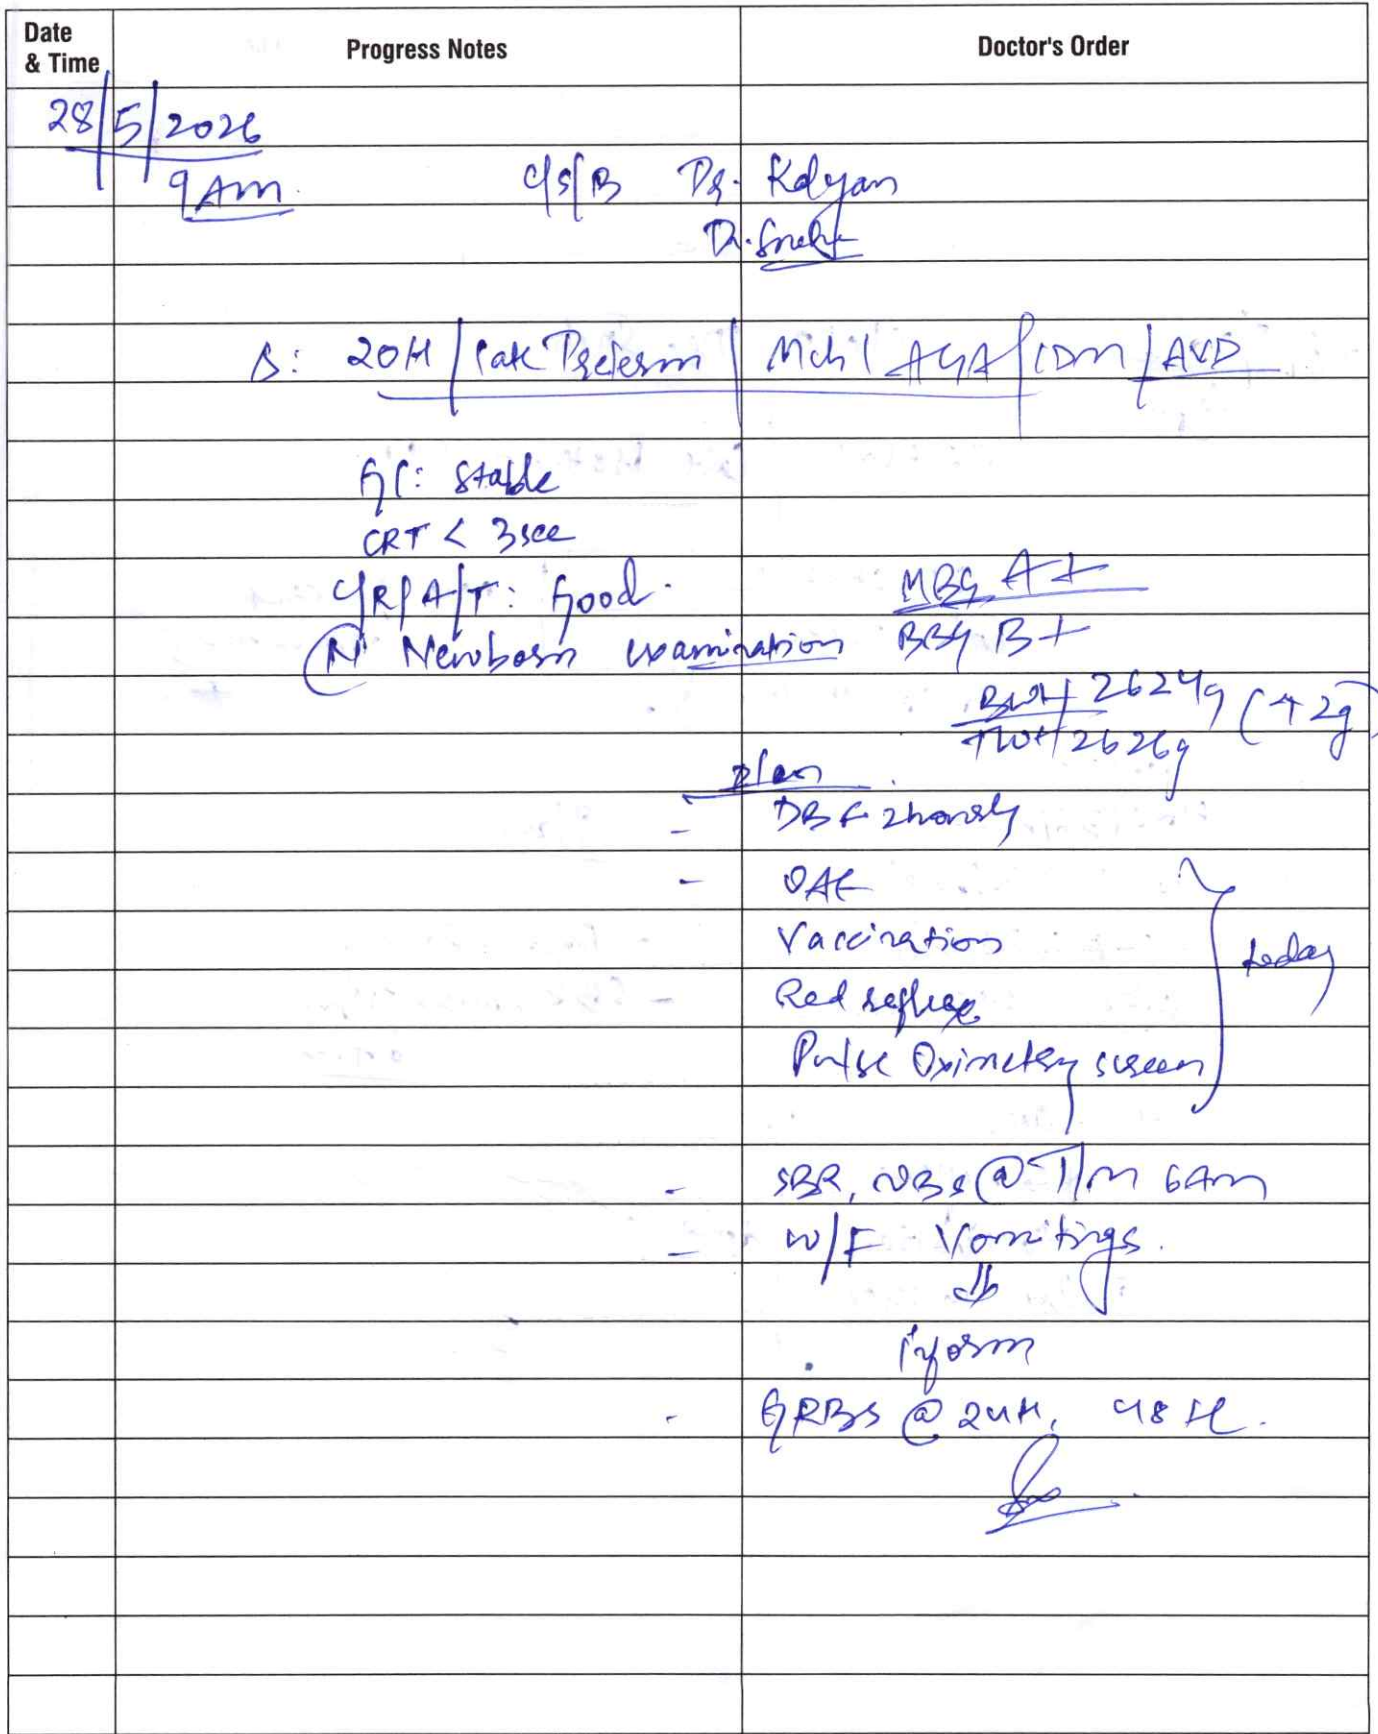 Date & Time
Progress Notes
Doctor's Order
28/5/2026
9Am
C/S/B Dr. Kalyan
Dr. Sneha
Δ: 20H / Late Preterm / Mch / AGA / IDM / AVD
GC: Stable
CRT < 3 sec
C/R/A/T: Good.
MBG A+
(N) Newborn examination BBG B+
BWt 2624g (↑2g)
TWt 2626g
Plan
- DBF 2hourly
- OAE
Vaccination
Red reflex
Pulse Oximetry screen
today
- SBR, NBS @ T/m 6Am
- W/F Vomitings.
⇓
inform
- GRBS @ 24H, 48H.